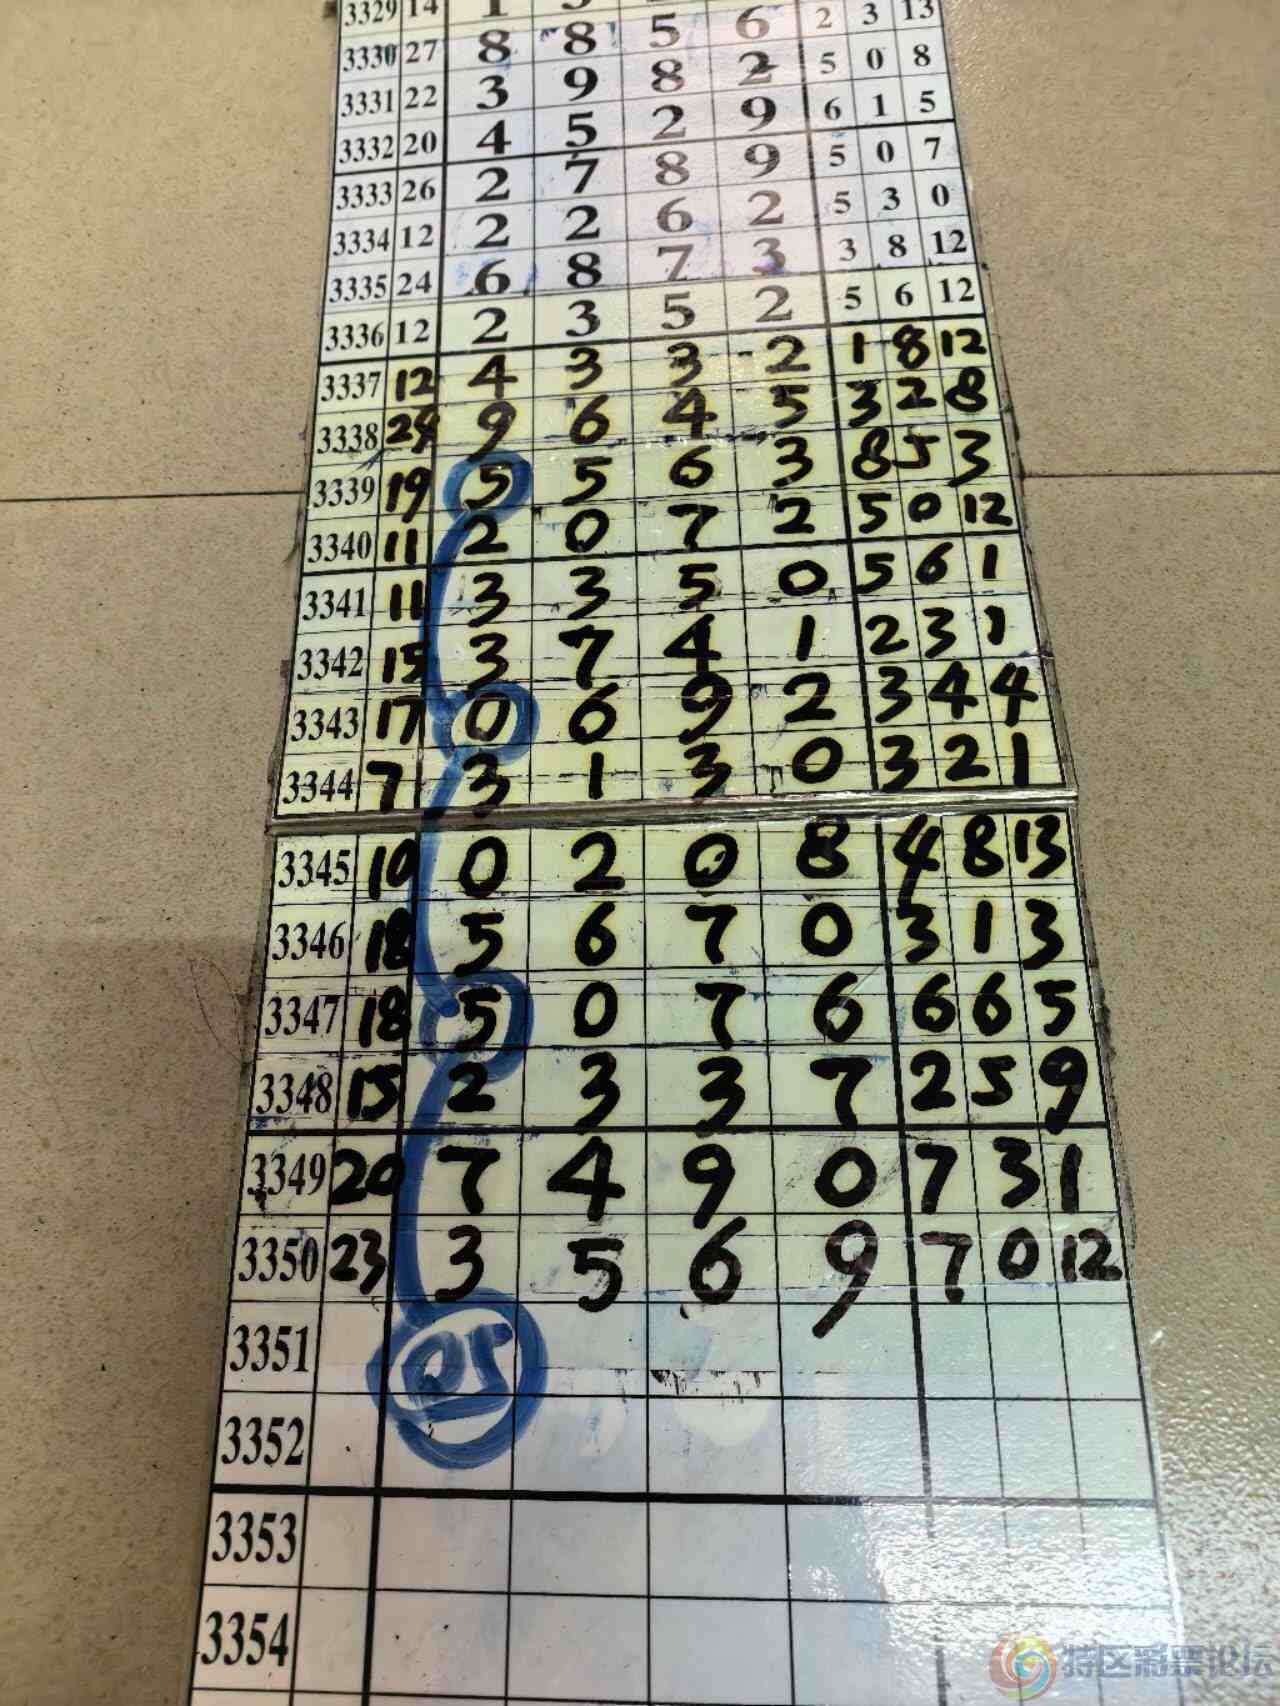 3329 14 1 3 2 3 13
3330 27 8 8 5 6 5 0 8
3331 22 3 9 8 2 6 1 5
3332 20 4 5 2 9 5 0 7
3333 26 2 7 8 9 5 3 0
3334 12 2 2 6 2 3 8 12
3335 24 6 8 7 3 5 6 12
3336 12 2 3 5 2 1 8 12
3337 12 4 3 3 2 3 2 8
3338 24 9 6 4 5 8 5 3
3339 19 5 5 6 3 5 0 12
3340 11 2 0 7 2 5 6 1
3341 11 3 3 5 0 2 3 1
3342 15 3 7 4 1 3 4 4
3343 17 0 6 9 2 3 2 1
3344 7 3 1 3 0
3345 10 0 2 0 8 4 8 13
3346 18 5 6 7 0 3 1 3
3347 18 5 0 7 6 6 6 5
3348 15 2 3 3 7 2 5 9
3349 20 7 4 9 0 7 3 1
3350 23 3 5 6 9 7 0 12
3351 05
3352
3353
3354
特区彩票论坛